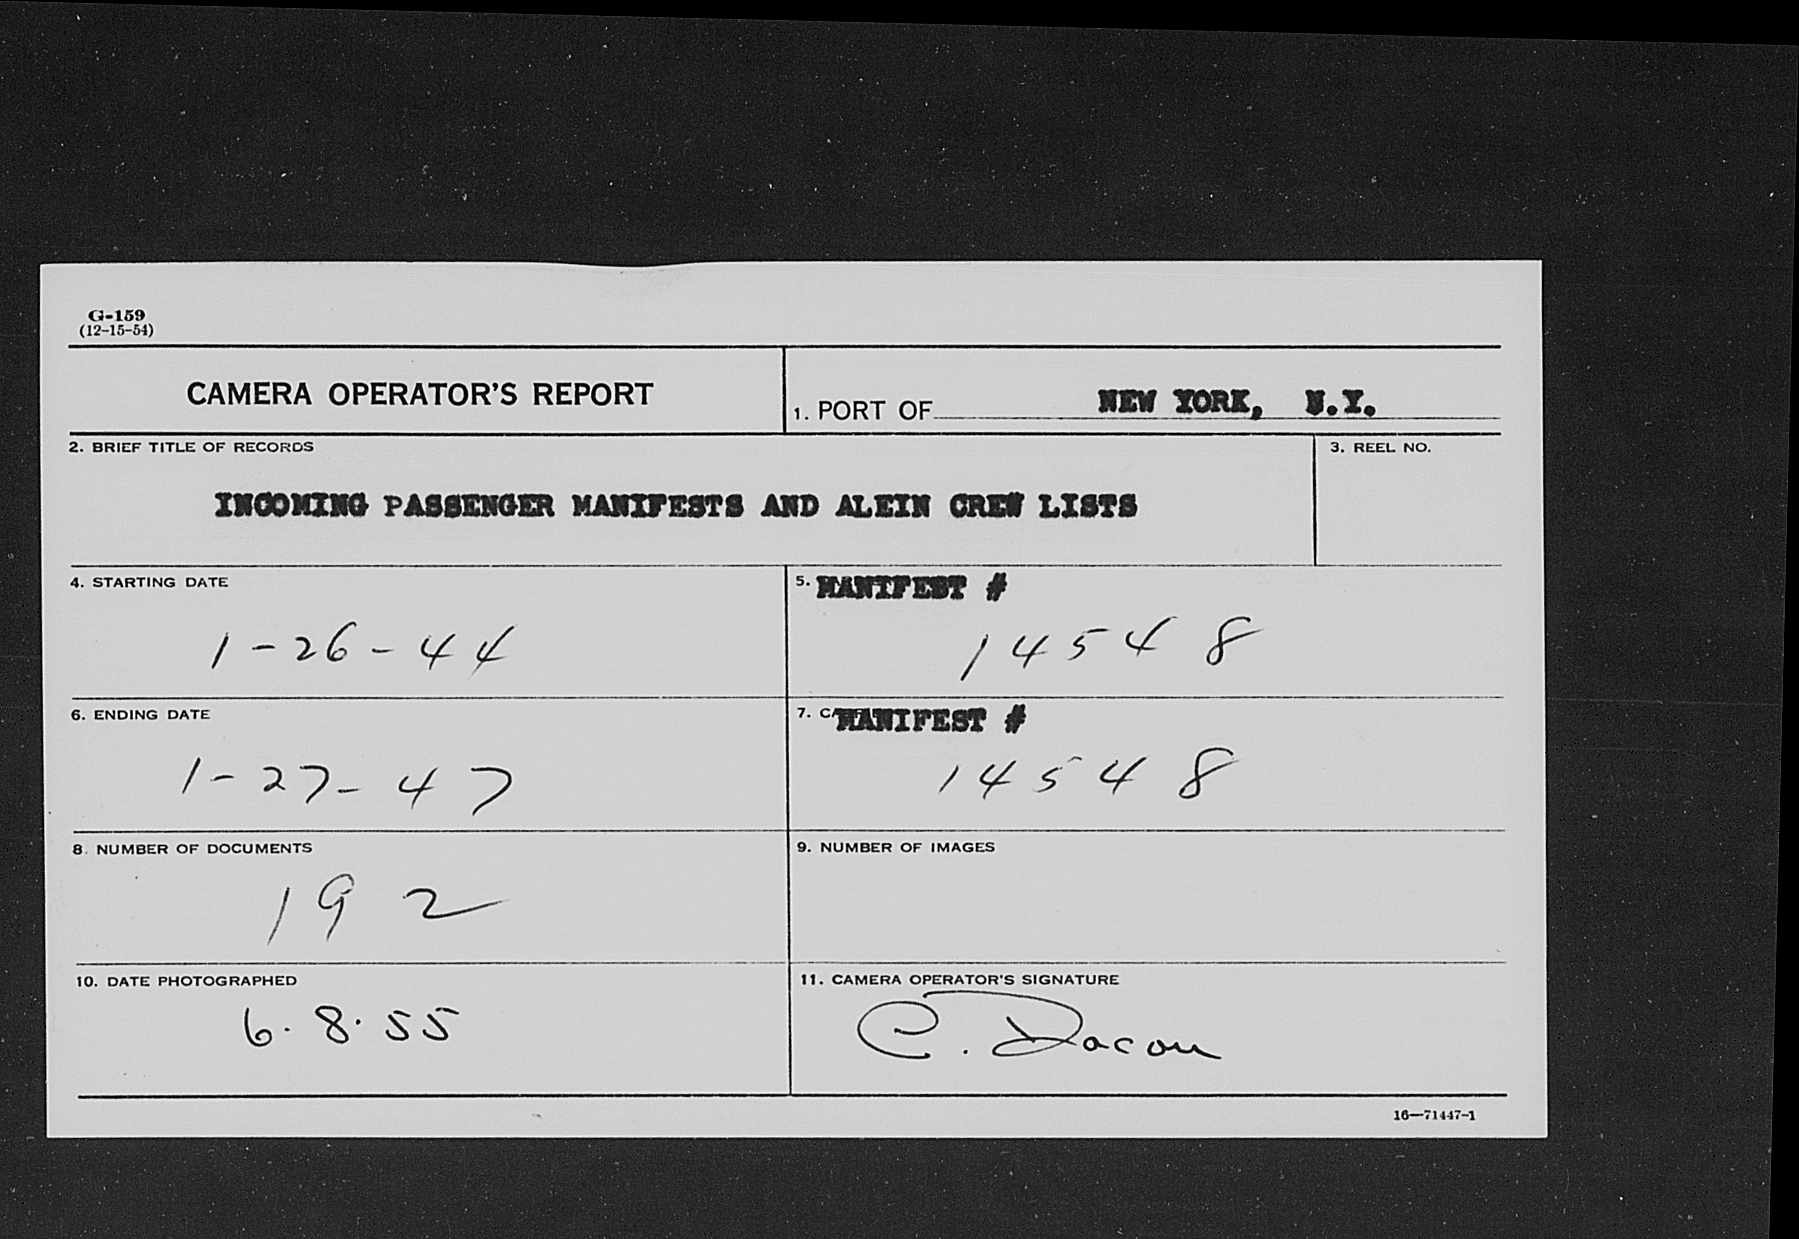 G-159
(12-15-54)
CAMERA OPERATOR'S REPORT
1. PORT OF NEW YORK, N.Y.
2. BRIEF TITLE OF RECORDS
3. REEL NO.
INCOMING PASSENGER MANIFESTS AND ALEIN CREW LISTS
4. STARTING DATE
1-26-44
5. MANIFEST #
14548
6. ENDING DATE
1-27-47
7. MANIFEST #
14548
8. NUMBER OF DOCUMENTS
192
9. NUMBER OF IMAGES
10. DATE PHOTOGRAPHED
6.8.55
11. CAMERA OPERATOR'S SIGNATURE
C. Dacon
16—71447-1